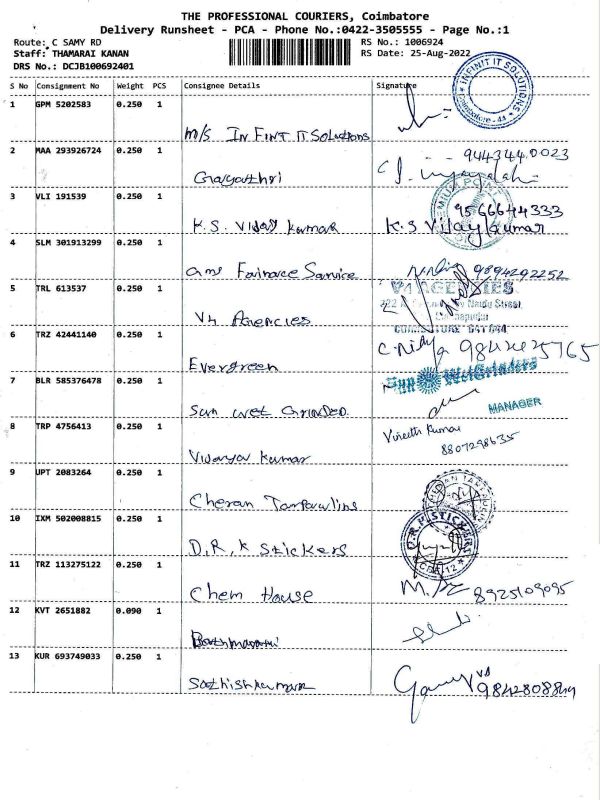 THE PROFESSIONAL COURIERS, Coimbatore
Delivery Runsheet - PCA - Phone No.:0422-3505555 - Page No.:1
Route: C SAMY RD RS No.: 1006924
Staff: THAMARAI KANAN RS Date: 25-Aug-2022
DRS No.: DCJB100692401
S No Consignment No Weight PCS Consignee Details Signature
1 GPM 5202583 0.250 1
INFINIT IT SOLUTIONS
Coimbatore - 44
M/S InFint IT Solutions
2 MAA 293926724 0.250 1
9443440023
Gayathri
3 VLI 191539 0.250 1
9566644333
K.S. Vijay Kumar K.S Vijay Kumar
4 SLM 301913299 0.250 1
ams Fainance Sarvice 9894292252
5 TRL 613537 0.250 1
V4 AGENCIES
Naidu Street
V4 Agencies
6 TRZ 42441140 0.250 1
Evergreen
7 BLR 585376478 0.250 1
Sun WetGrinders
MANAGER
Sun Wet Grinded
8 TRP 4756413 0.250 1
Vineeth Kumar
8807298635
Vijaya Kumar
9 UPT 2083264 0.250 1
Cheran Tarpaulins
10 IXM 502008815 0.250 1
D.R.K STICKERS
D.R.K Stickers
11 TRZ 113275122 0.250 1
Chem House 8925109095
12 KVT 2651882 0.090 1
13 KUR 693749033 0.250 1
Sathishkumar